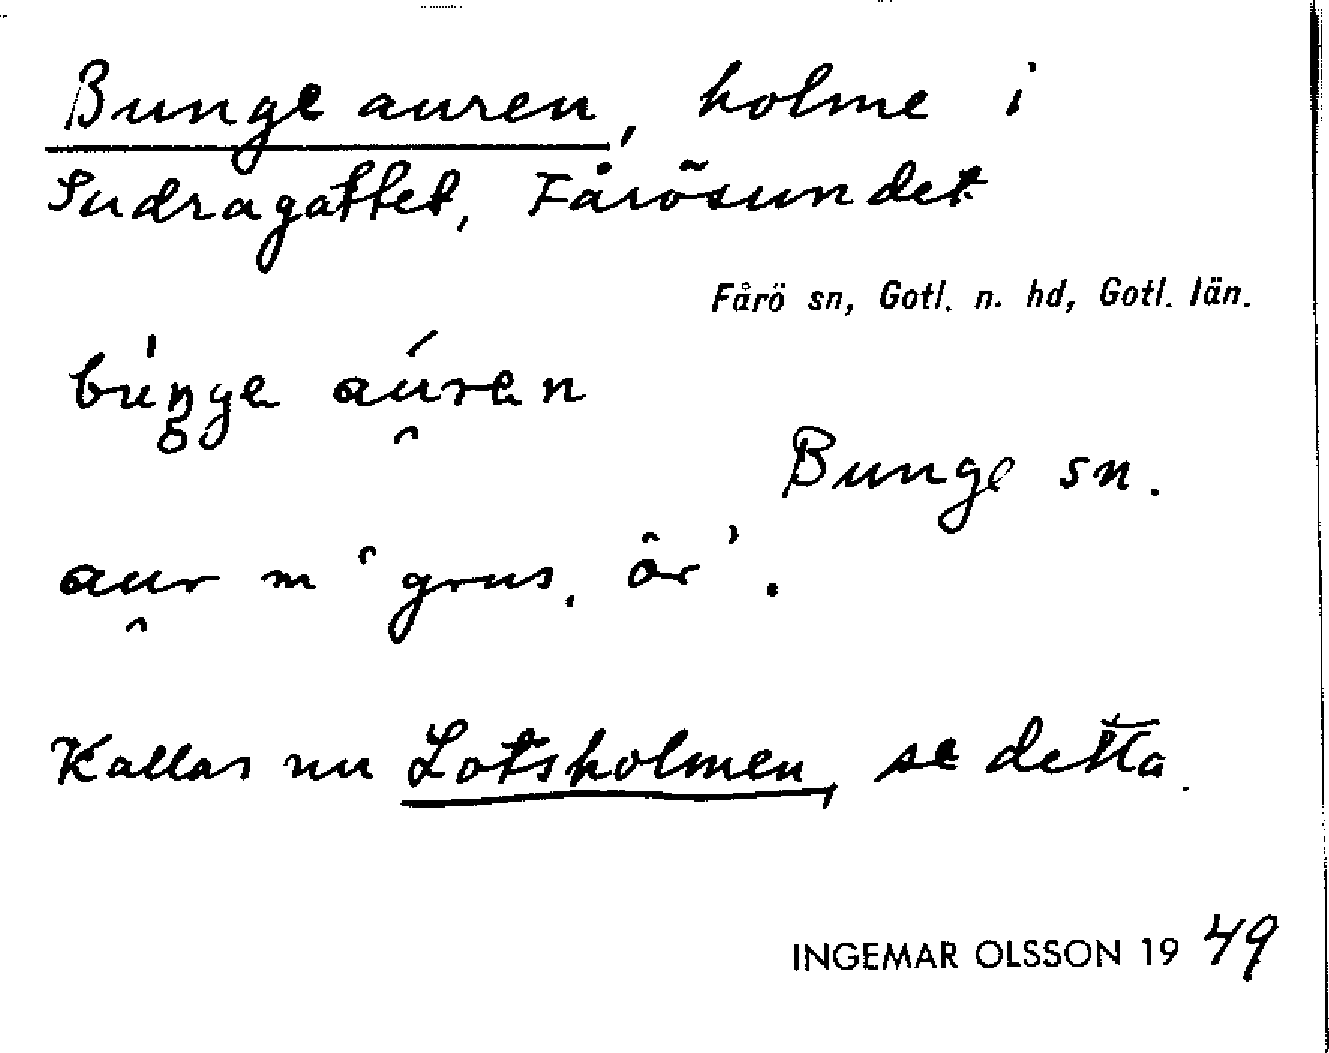 Bunge auren, holme i
Sudragattet, Fårösundet
Fårö sn, Gotl. n. hd, Gotl. län.
búŋge aú̯ren
Bunge sn.
au̯r m 'grus, ör'.
Kallas nu Lotsholmen, se detta.
INGEMAR OLSSON 1949